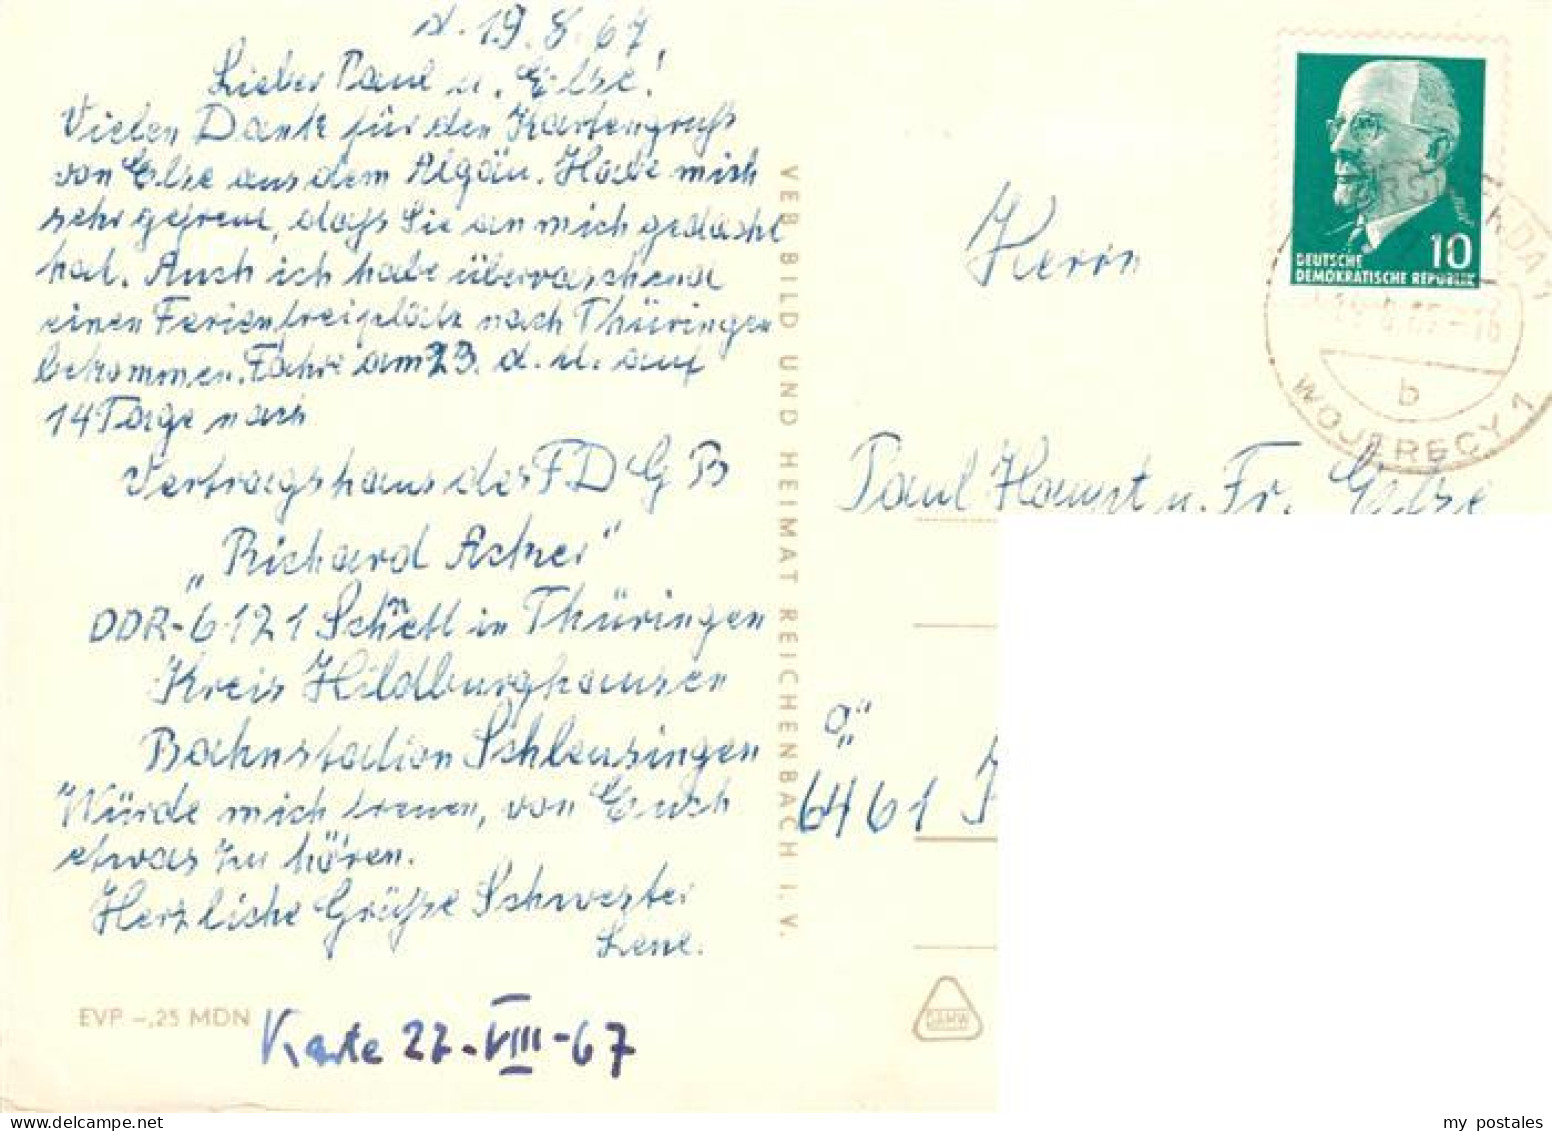 d. 19.8.67
Lieber Paul u. Else!
Vielen Dank für den Kartengruß
von Else aus dem Algäu. Habe mich
sehr gefreut, daß Sie an mich gedacht
hat. Auch ich habe überraschend
einen Ferienfreiplatz nach Thüringen
bekommen. Fahre am 23. d. M. auf
14 Tage nach
Vertragshaus des FDGB
„Richard Acker"
DDR-6121 in Thüringen
Kreis Hildburghausen
Bahnstation Schleusingen
Würde mich freuen, von Euch
etwas zu hören.
Herzliche Grüße Schwester
Lene.
EVP -,25 MDN
Karte 22-VIII-67
VEB BILD UND HEIMAT REICHENBACH I. V.
Herrn
Paul Haupt u. Fr. Else
6461
DEUTSCHE 10
DEMOKRATISCHE REPUBLIK
b
WOJERECY 1
my postales